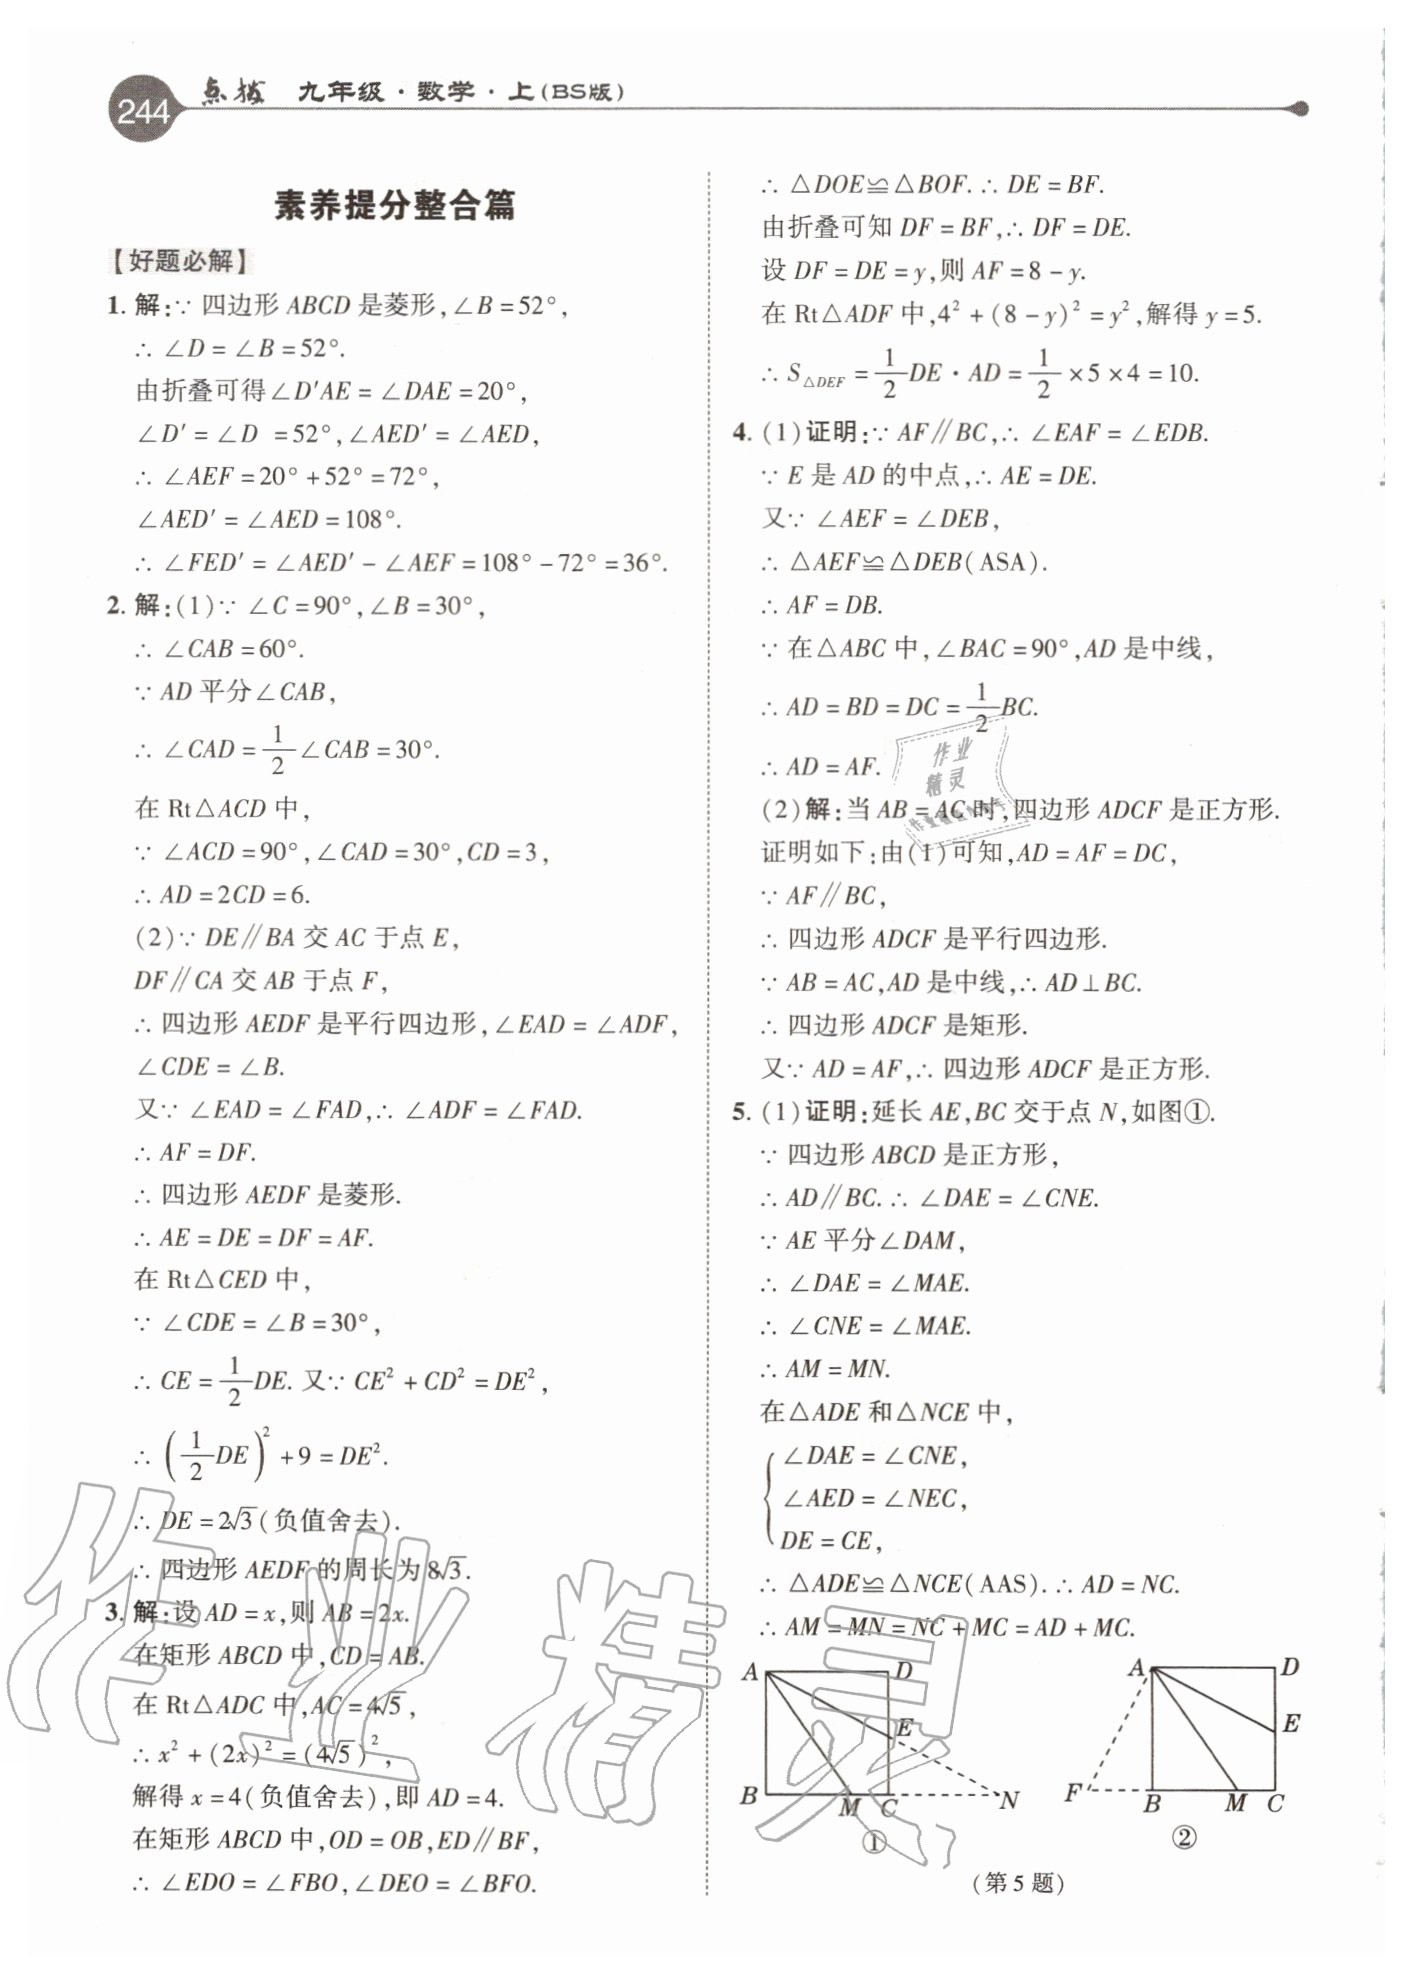 244 点拨 九年级·数学·上(BS版)
素养提分整合篇
【好题必解】
1. 解:∵ 四边形 ABCD 是菱形,∠B=52°,
∴ ∠D=∠B=52°.
由折叠可得∠D′AE=∠DAE=20°,
∠D′=∠D =52°,∠AED′=∠AED,
∴ ∠AEF=20°+52°=72°,
∠AED′=∠AED=108°.
∴ ∠FED′=∠AED′-∠AEF=108°-72°=36°.
2. 解:(1)∵ ∠C=90°,∠B=30°,
∴ ∠CAB=60°.
∵ AD 平分∠CAB,
∴ ∠CAD=1/2∠CAB=30°.
在 Rt△ACD 中,
∵ ∠ACD=90°,∠CAD=30°,CD=3,
∴ AD=2CD=6.
(2)∵ DE∥BA 交 AC 于点 E,
DF∥CA 交 AB 于点 F,
∴ 四边形 AEDF 是平行四边形,∠EAD=∠ADF,
∠CDE=∠B.
又∵ ∠EAD=∠FAD,∴ ∠ADF=∠FAD.
∴ AF=DF.
∴ 四边形 AEDF 是菱形.
∴ AE=DE=DF=AF.
在 Rt△CED 中,
∵ ∠CDE=∠B=30°,
∴ CE=1/2DE. 又∵ CE²+CD²=DE²,
∴ (1/2DE)²+9=DE².
∴ DE=2√3(负值舍去).
∴ 四边形 AEDF 的周长为 8√3.
3. 解:设 AD=x,则 AB=2x.
在矩形 ABCD 中,CD=AB.
在 Rt△ADC 中,AC=4√5,
∴ x²+(2x)²=(4√5)²,
解得 x=4(负值舍去),即 AD=4.
在矩形 ABCD 中,OD=OB,ED∥BF,
∴ ∠EDO=∠FBO,∠DEO=∠BFO.
∴ △DOE≌△BOF. ∴ DE=BF.
由折叠可知 DF=BF,∴ DF=DE.
设 DF=DE=y,则 AF=8-y.
在 Rt△ADF 中,4²+(8-y)²=y²,解得 y=5.
∴ S△DEF=1/2DE·AD=1/2×5×4=10.
4. (1)证明:∵ AF∥BC,∴ ∠EAF=∠EDB.
∵ E 是 AD 的中点,∴ AE=DE.
又∵ ∠AEF=∠DEB,
∴ △AEF≌△DEB(ASA).
∴ AF=DB.
∵ 在△ABC 中,∠BAC=90°,AD 是中线,
∴ AD=BD=DC=1/2BC.
∴ AD=AF.
(2)解:当 AB=AC 时,四边形 ADCF 是正方形.
证明如下:由(1)可知,AD=AF=DC,
∵ AF∥BC,
∴ 四边形 ADCF 是平行四边形.
∵ AB=AC,AD 是中线,∴ AD⊥BC.
∴ 四边形 ADCF 是矩形.
又∵ AD=AF,∴ 四边形 ADCF 是正方形.
5. (1)证明:延长 AE,BC 交于点 N,如图①.
∵ 四边形 ABCD 是正方形,
∴ AD∥BC. ∴ ∠DAE=∠CNE.
∵ AE 平分∠DAM,
∴ ∠DAE=∠MAE.
∴ ∠CNE=∠MAE.
∴ AM=MN.
在△ADE 和△NCE 中,
∠DAE=∠CNE,
∠AED=∠NEC,
DE=CE,
∴ △ADE≌△NCE(AAS). ∴ AD=NC.
∴ AM=MN=NC+MC=AD+MC.
A D E B M C N
①
A D E F B M C
②
(第5题)
作业
精灵
作业精灵